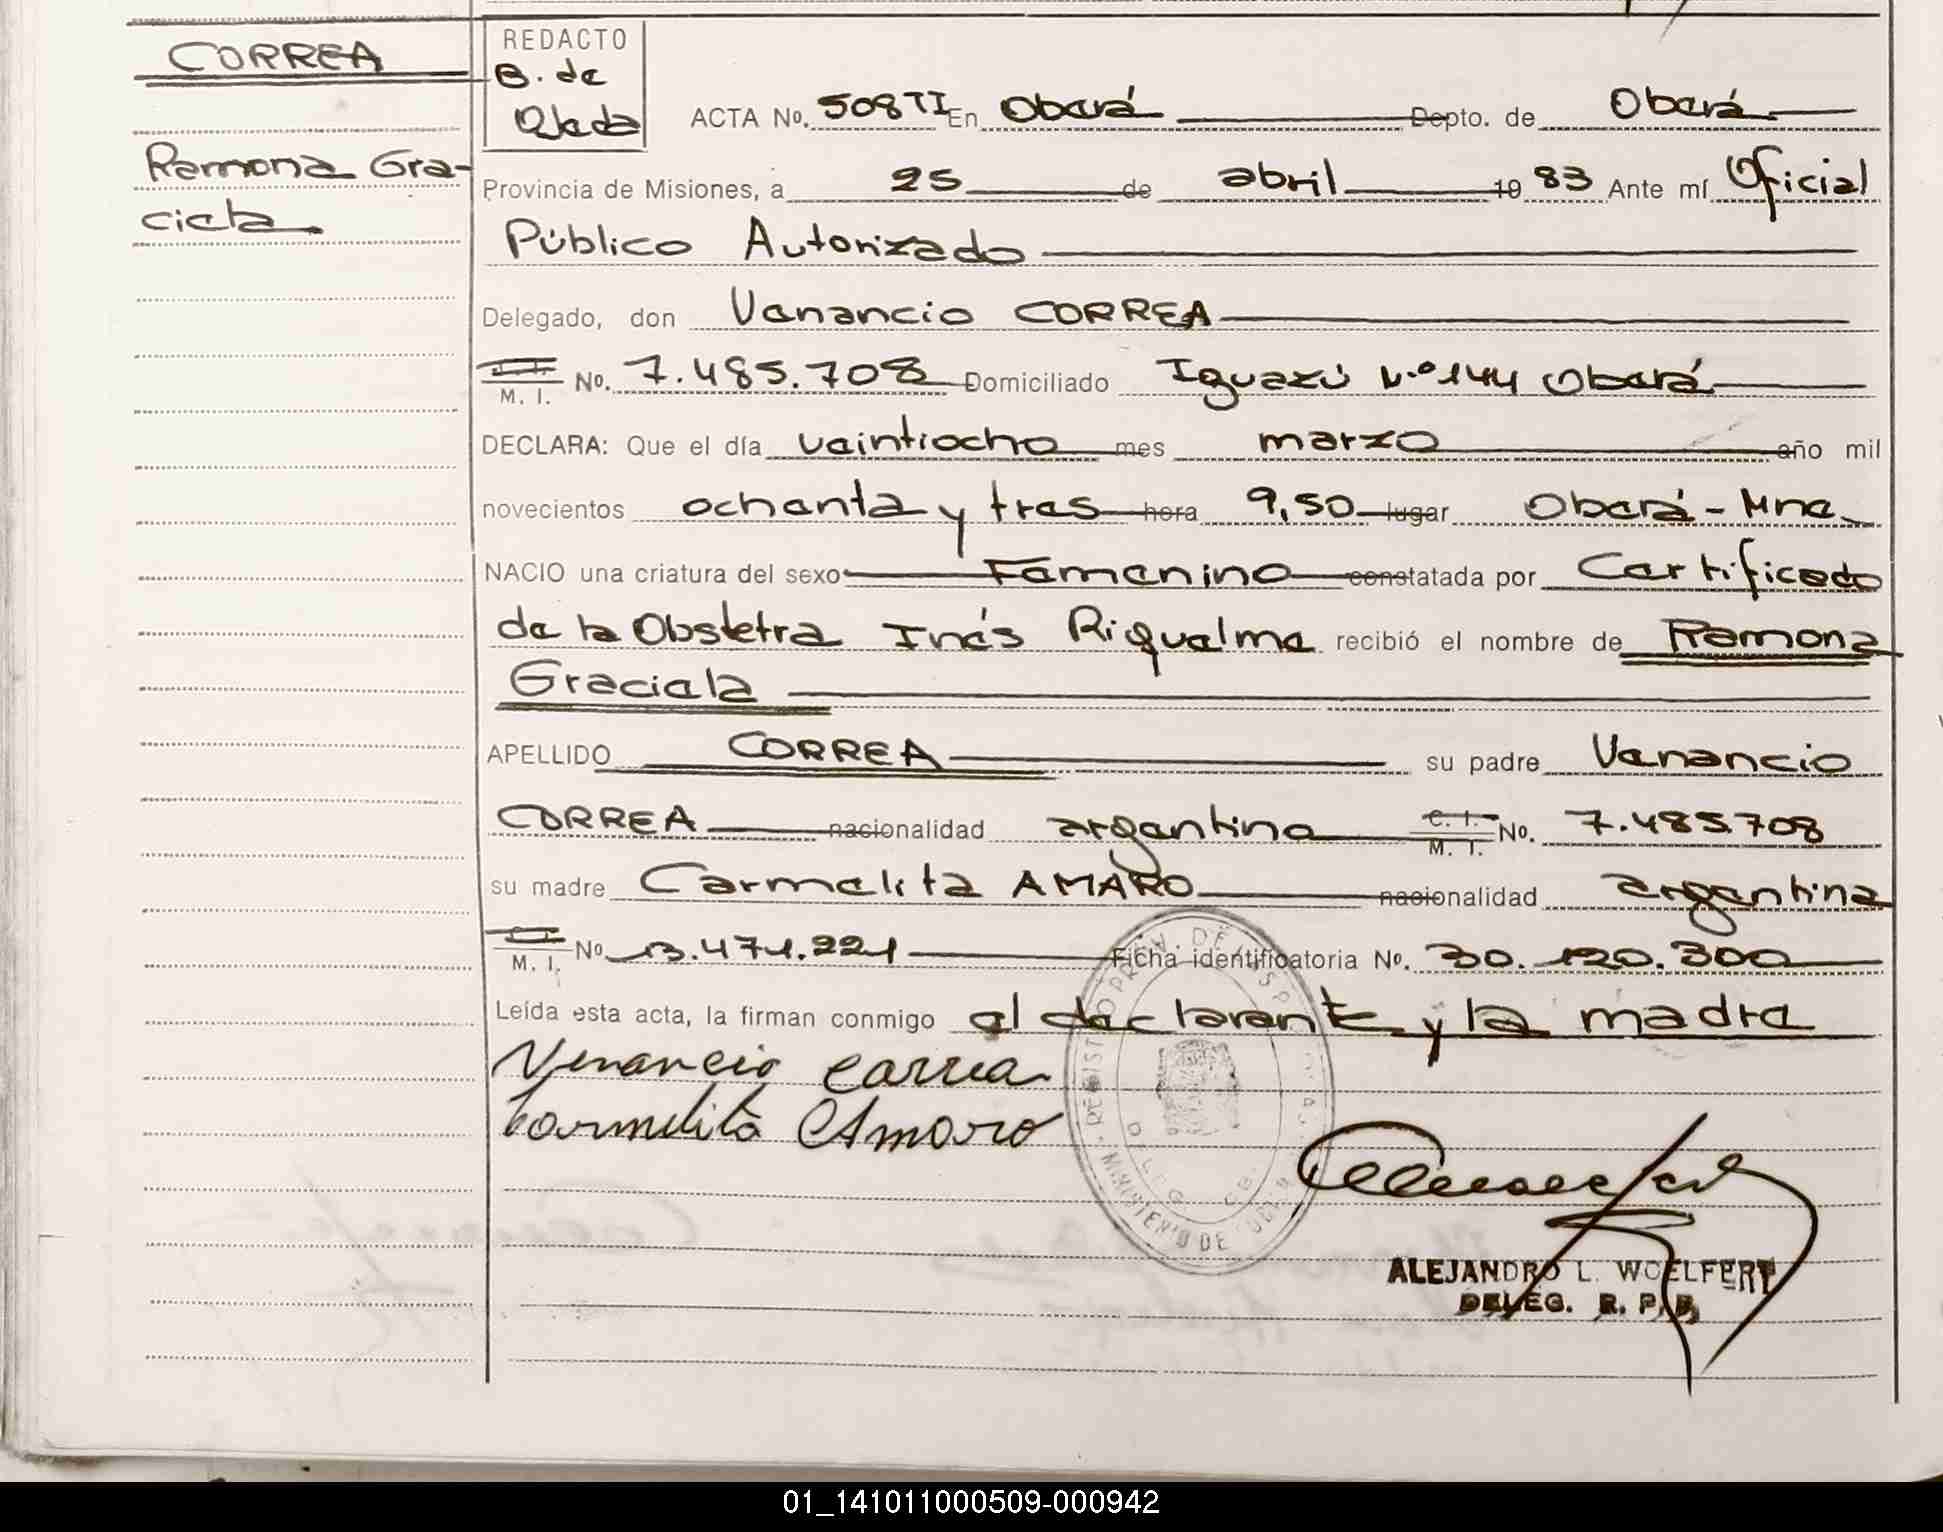 CORREA
Ramona Gra-
ciela
REDACTO
B. de
Ojeda
ACTA No. 508 TI En Oberá Depto. de Oberá
Provincia de Misiones, a 25 de abril 19 83 Ante mí Oficial
Público Autorizado
Delegado, don Venancio CORREA
C. I.
M. I. No. 7.485.708 Domiciliado Iguazú N.º 144 Oberá
DECLARA: Que el día veintiocho mes marzo año mil
novecientos ochenta y tres hora 9,50 lugar Oberá - Mne.
NACIO una criatura del sexo Femenino constatada por Certificado
de la Obstetra Inés Riquelme recibió el nombre de Ramona
Graciela
APELLIDO CORREA su padre Venancio
CORREA nacionalidad argentino C. I.
M. I. No. 7.485.708
su madre Carmelita AMARO nacionalidad argentina
C. I.
M. I. No 13.471.221 Ficha identificatoria No. 30.120.300
Leída esta acta, la firman conmigo el declarante y la madre
Venancio Correa
Carmelita Amaro
REGISTRO PROV. DE LAS PERSONAS
MINISTERIO DE GOBIERNO
ALEJANDRO L. WOELFERT
DELEG. R. P. P.
01_141011000509-000942